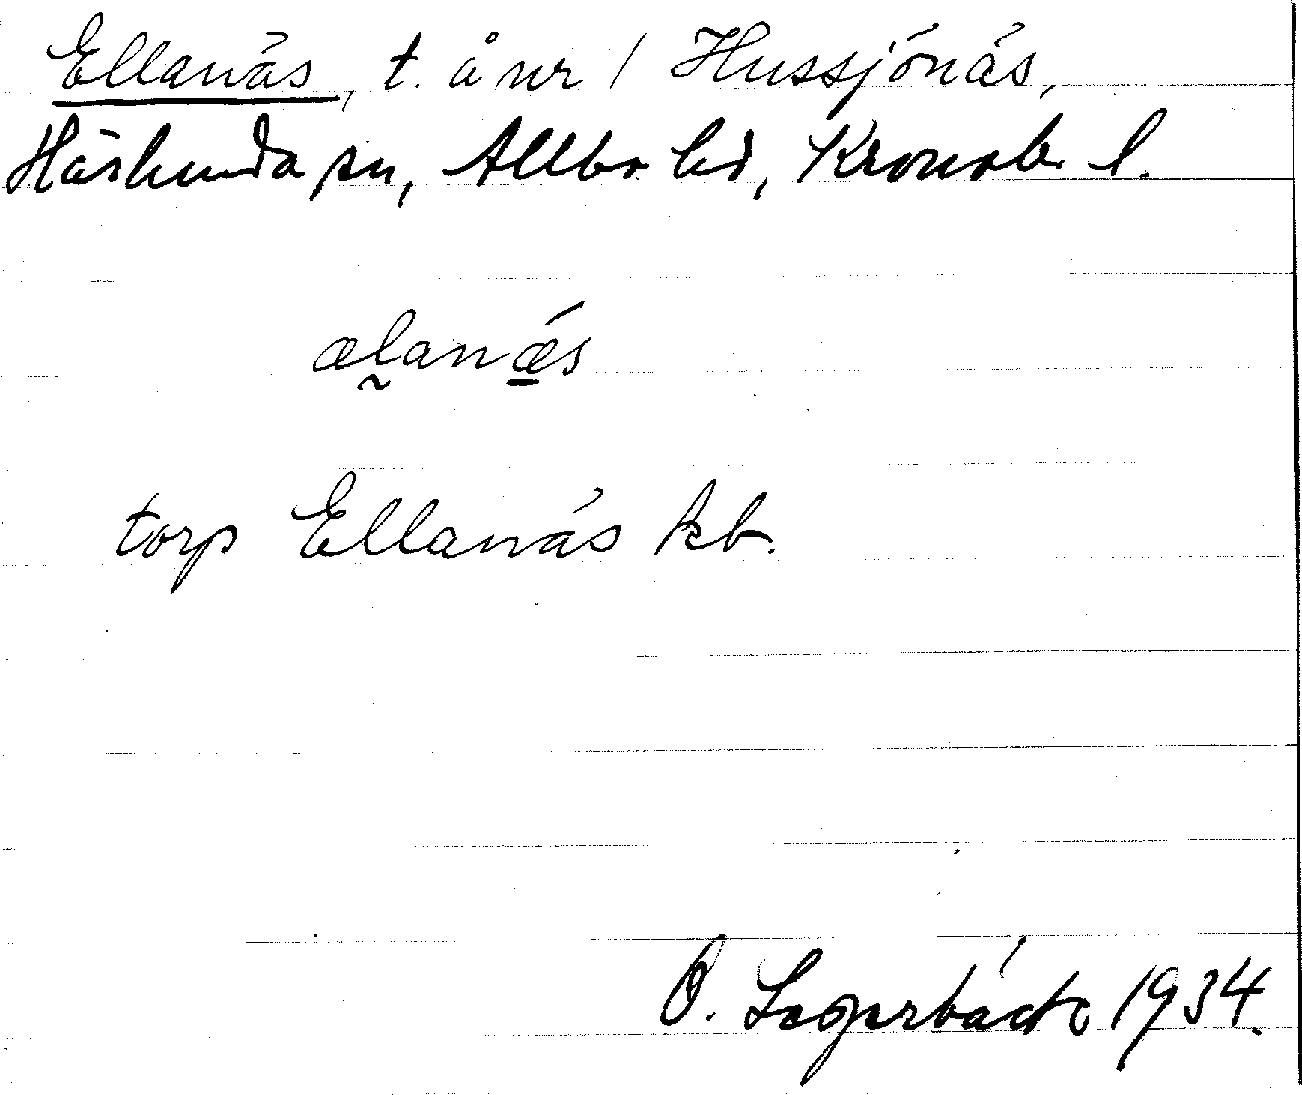 Ellanäs, t. å nr 1 Hussjönäs,
Härlunda sn, Allbo hd, Kronob. l.
ælanǽ̲s
torp Ellanäs kb.
O. Lagerbäck 1934.